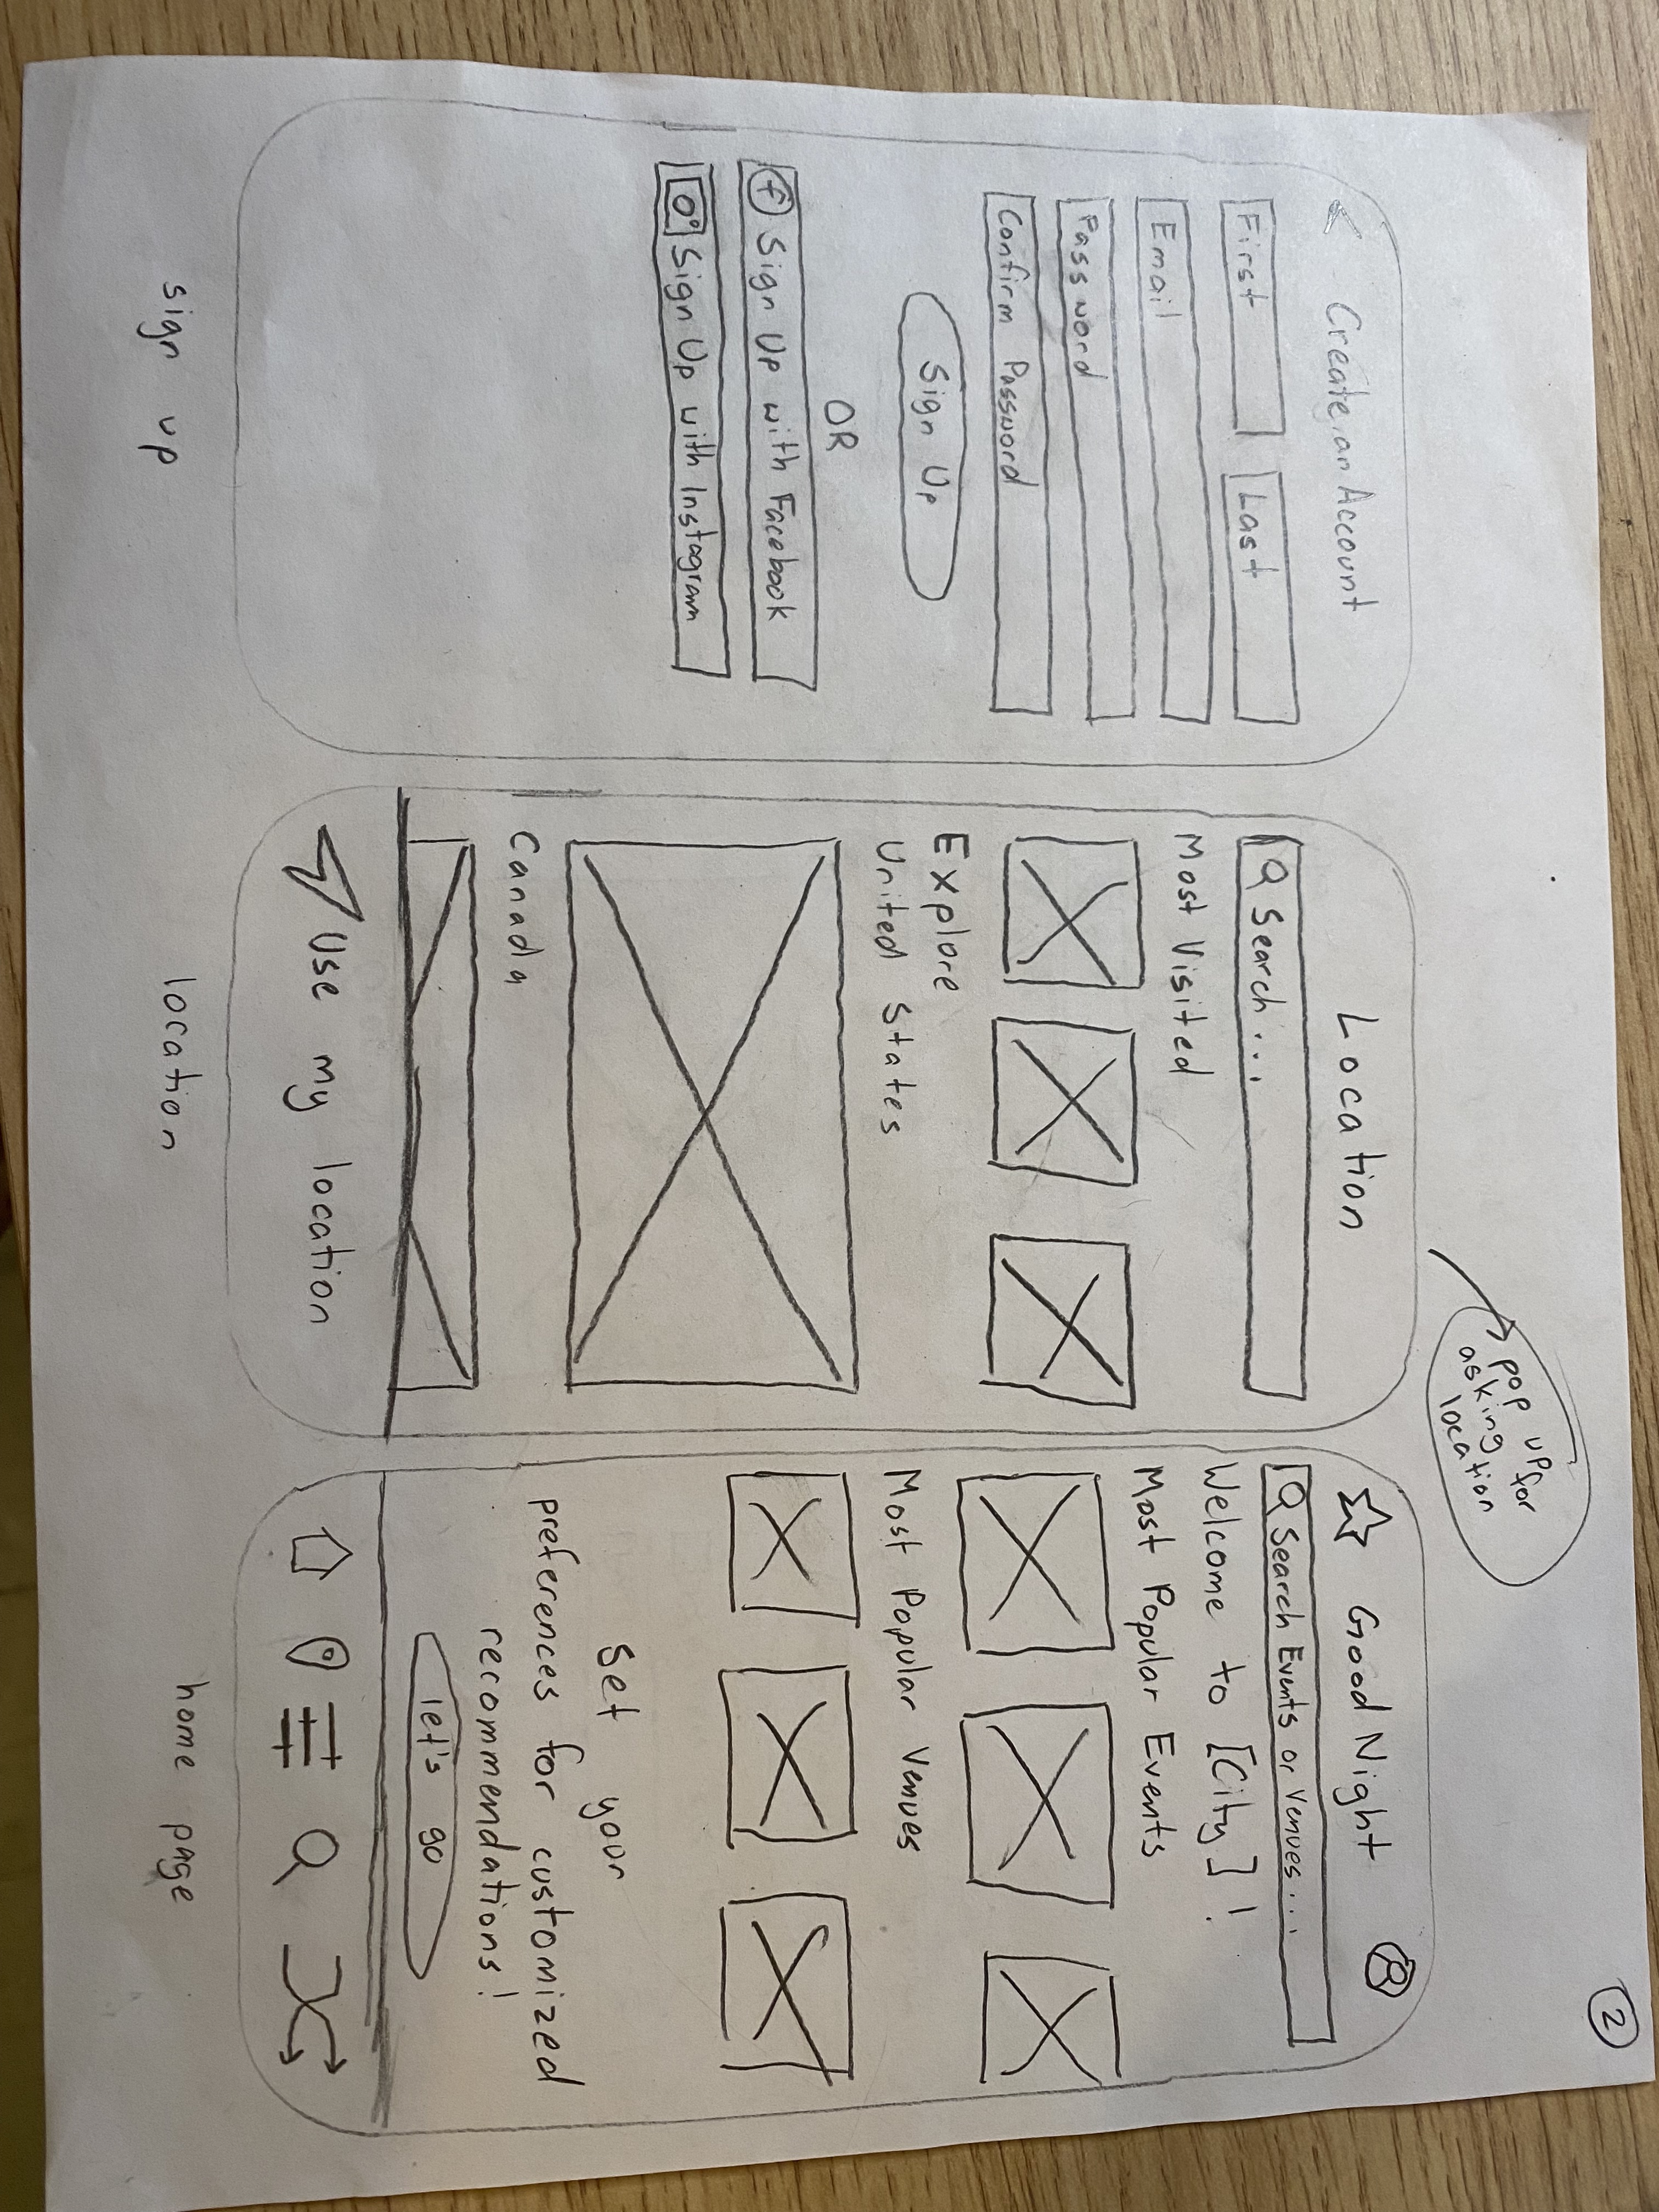 2
pop up
for
asking
location
Create an Account
First
Last
Email
Password
Confirm Password
Sign Up
OR
f Sign Up with Facebook
Sign Up with Instagram
sign up
Location
Search ...
Most Visited
Explore
United States
Canada
Use my location
location
Good Night
Search Events or Venues ...
Welcome to [City] !
Most Popular Events
Most Popular Venues
Set your
preferences for customized
recommendations!
let's go
home page